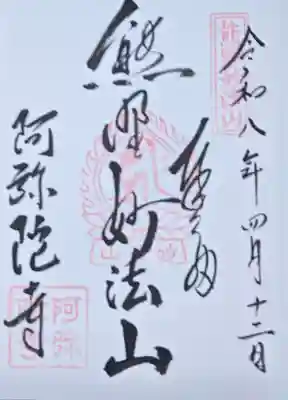 令和八年四月十二日
奉拝
熊野妙法山
阿弥陀寺